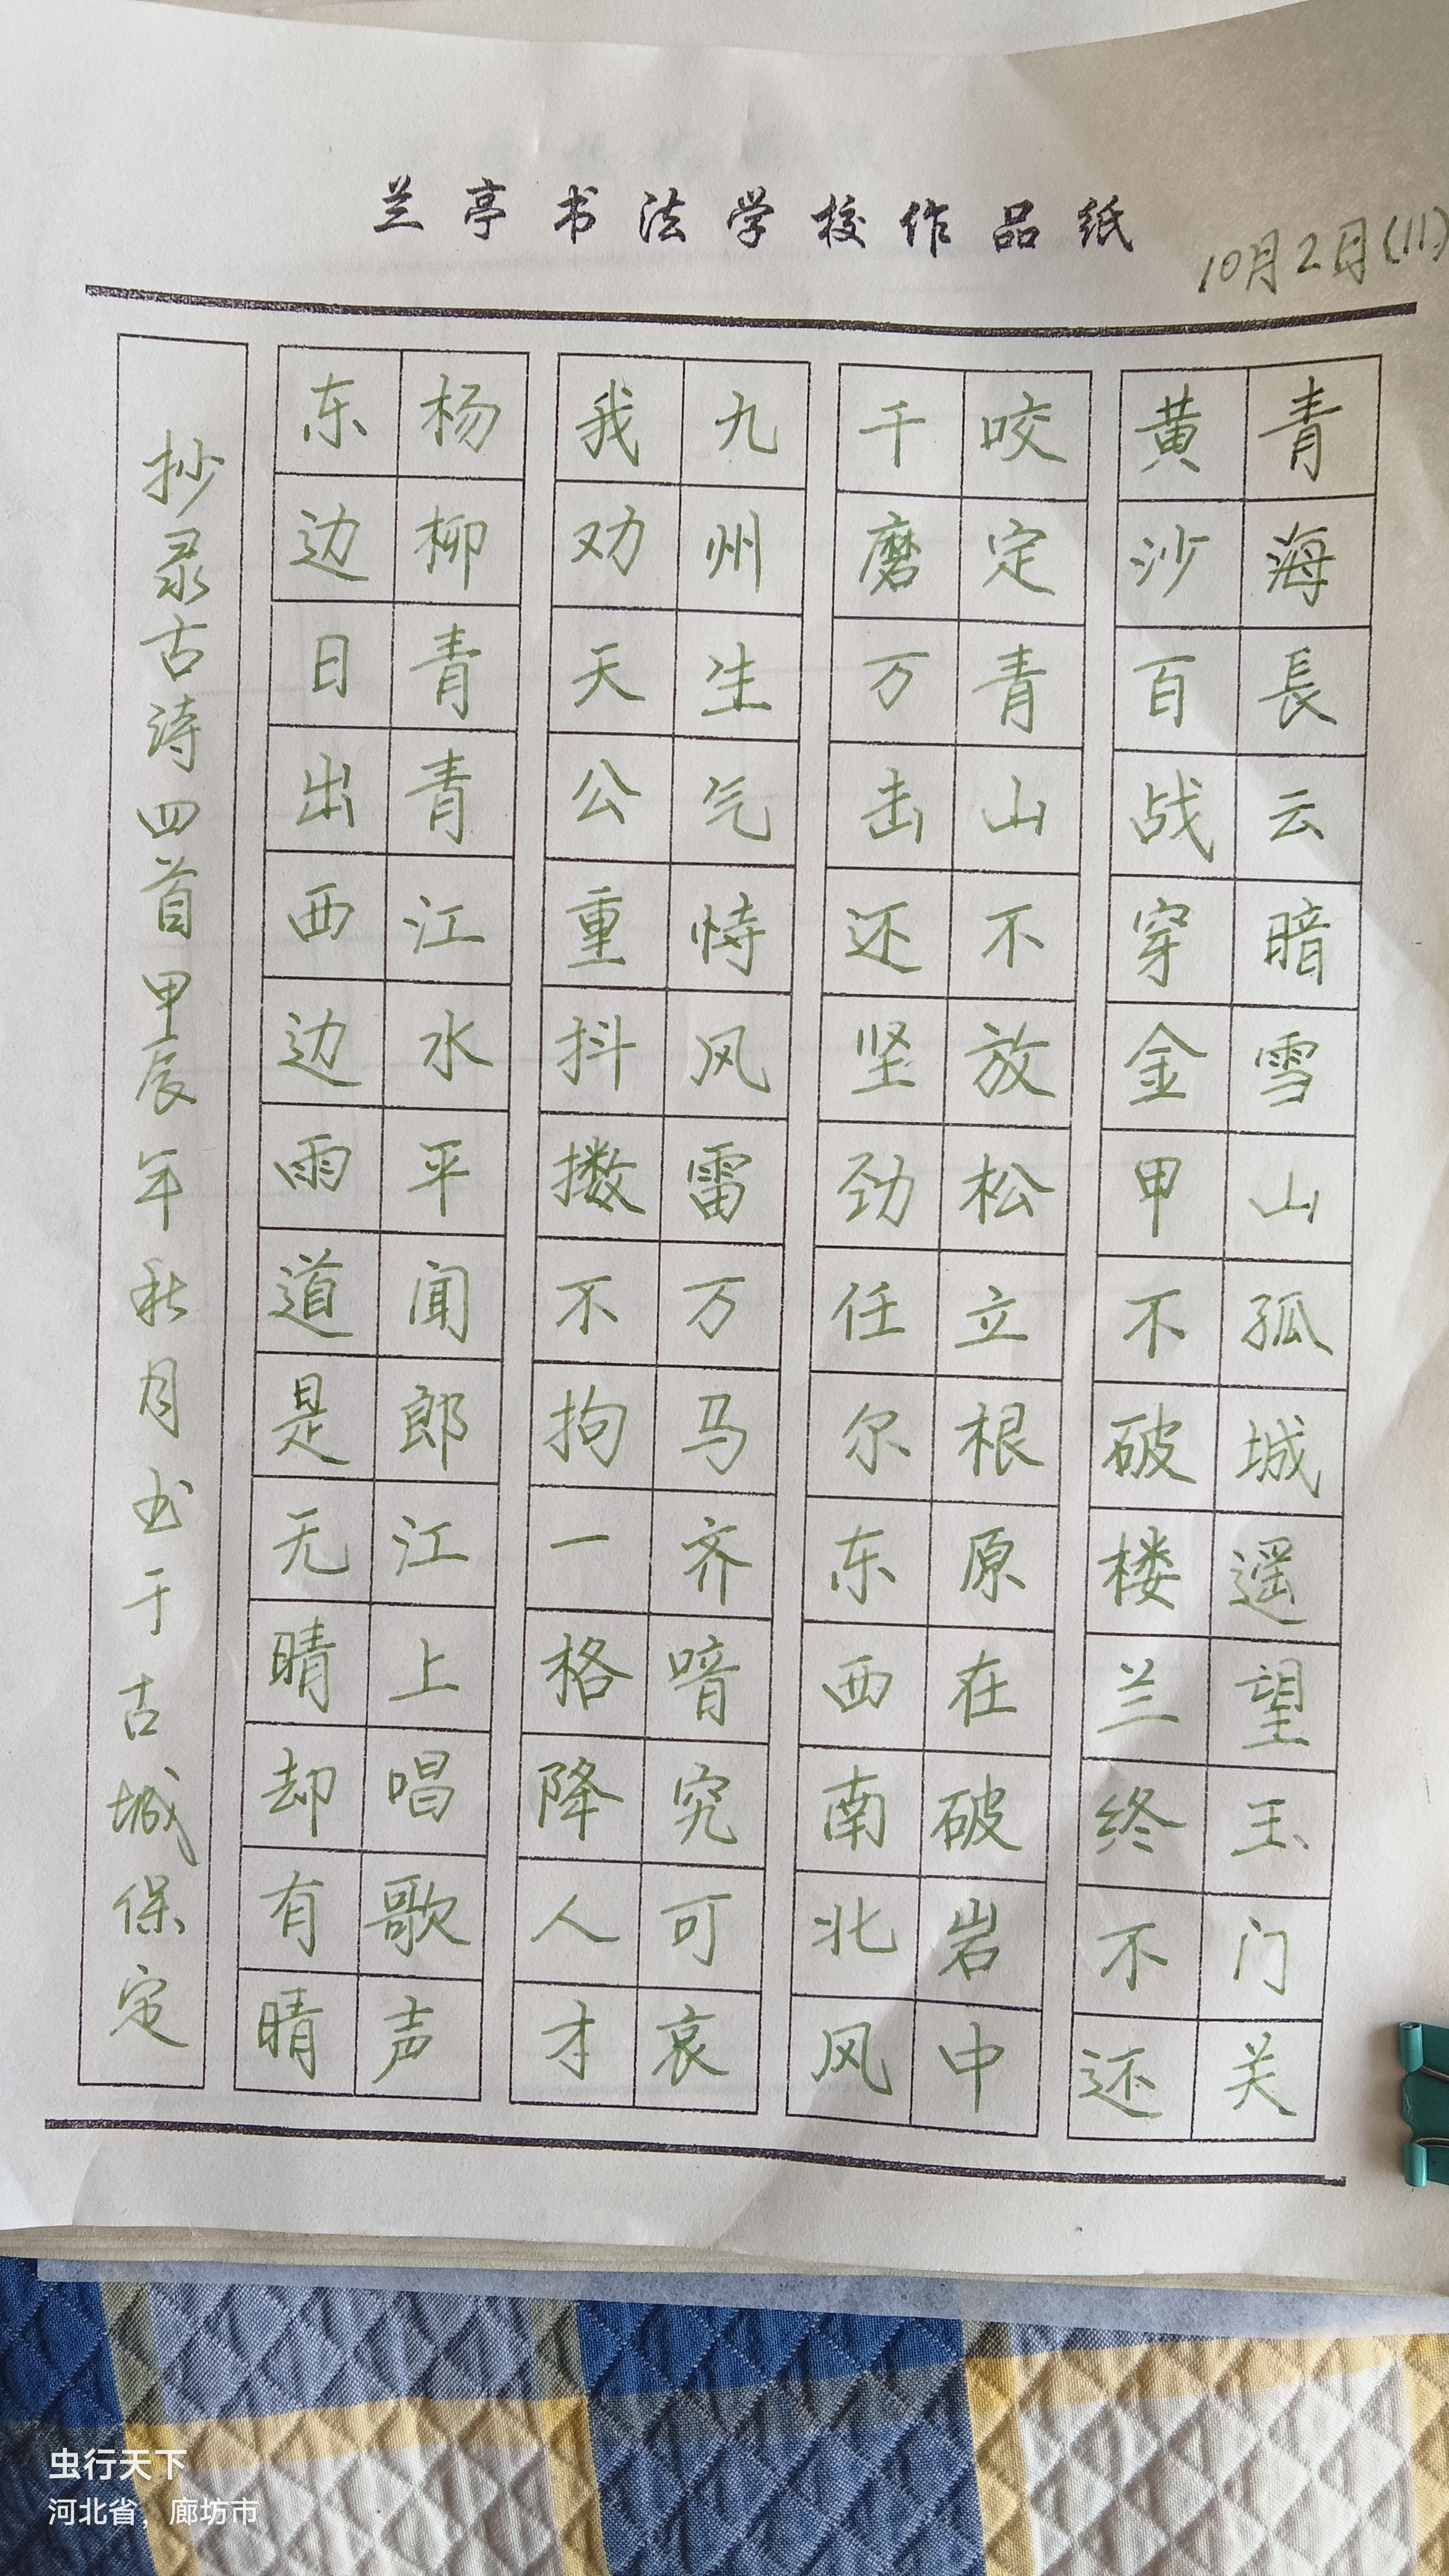 兰亭书法学校作品纸
10月2日(11)
青海長云暗雪山孤城遥望玉门关
黄沙百战穿金甲不破楼兰终不还
咬定青山不放松立根原在破岩中
千磨万击还坚劲任尔东西南北风
九州生气恃风雷万马齐喑究可哀
我劝天公重抖擞不拘一格降人才
杨柳青青江水平闻郎江上唱歌声
东边日出西边雨道是无晴却有晴
抄录古诗四首甲辰年秋月书于古城保定
虫行天下
河北省，廊坊市